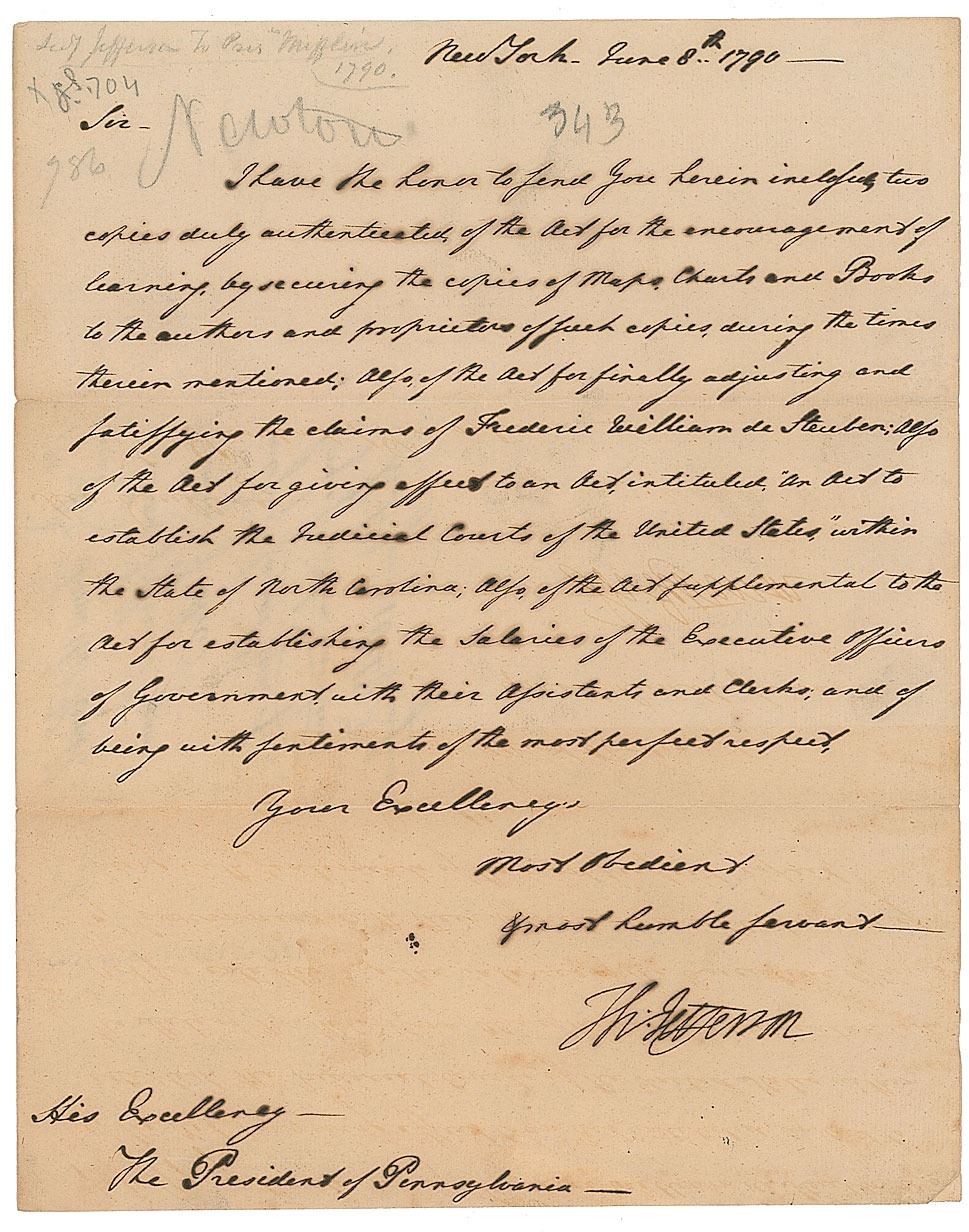 Secy Jefferson To Pres Mifflin,
1790.
New York - June 8th 1790
704
Sir -
Newton
343
986
I have the honor to send You herein inclosed, two
copies duly authenticated, of the Act for the encouragement of
learning, by securing the copies of Maps, Charts and Books
to the authors and proprietors of such copies, during the times
therein mentioned; Also, of the Act for finally adjusting and
satisfying the claims of Frederic William de Steuben; Also
of the Act for giving effect to an Act, intituled, "An Act to
establish the Judicial Courts of the United States," within
the State of North Carolina; Also, of the Act supplemental to the
Act for establishing the Salaries of the Executive Officers
of Government, with their Assistants and Clerks; and of
being with sentiments of the most perfect respect,
Your Excellency's
Most Obedient
& most humble servant
Th: Jefferson
His Excellency
The President of Pennsylvania